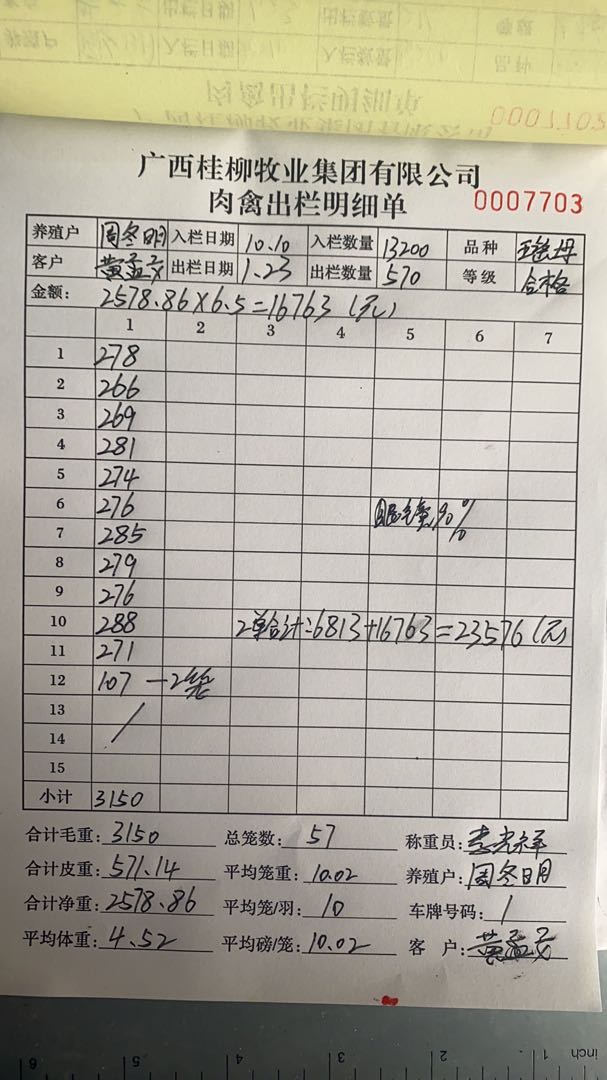 0007703
广西桂柳牧业集团有限公司
肉禽出栏明细单
0007703
养殖户 周冬明 入栏日期 10.10 入栏数量 13200 品种
客户 黄孟文 出栏日期 1.23 出栏数量 570 等级 合格
金额: 2578.86×6.5=16763(元)
1 2 3 4 5 6 7
1 278
2 266
3 269
4 281
5 274
6 276 90%
7 285
8 279
9 276
10 288 2单合计:6813+16763=23576(元)
11 271
12 107 —2笼
13 /
14
15
小计 3150
合计毛重: 3150 总笼数: 57 称重员: 李光祥
合计皮重: 571.14 平均笼重: 10.02 养殖户: 周冬明
合计净重: 2578.86 平均笼/羽: 10 车牌号码: /
平均体重: 4.52 平均磅/笼: 10.02 客 户: 黄孟文
inch 1 2 3 4 5 6